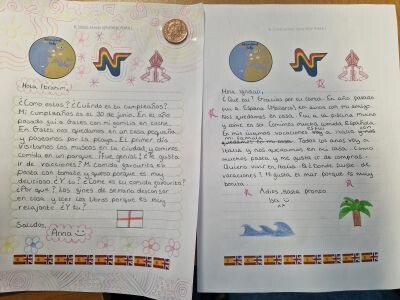 Hola Ibrahim,
¿Cómo estas? ¿Cuándo es tu cumpleaños?
Mi cumpleaños es el 30 de junio. En el año
pasado fui a Gales con mi familia en coche.
En Gales nos quedamos en una casa pequeña
y paseamos por la playa. El primer día
visitamos los museos en la ciudad y comimos
comida en un parque. ¡Fue genial! ¿Te gusta
ir de vacaciones? Mi comida favorita es
pasta con tomate y queso porque es muy
deliciosa. ¿Y tu? ¿Cuál es tu comida favorita?
¿Por qué? Los fines de semana descansar
en casa y leer los libros porque es muy
relajante. ¿Y tu?
Saludos,
Anna
Hola Ignacio,
¿Qué tal? Gracias por tu carta. En año pasado
fui a España (Mallorca) en avion con mi amiga.
Nos quedamos en casa. Fui a la piscina mucho
y comí en bar. Comimos mucha comida Española.
En mis últimas vacaciones fui a Italia con
mi familia
quedamos en mi casa. Todos los anos voy a
Italia y nos quedamos en su casa. Comí
mucha pasta y me gusta ir de compras.
Quiero vivir en Italia. ¿Y donde fuiste de
vacaciones? Mi gusta el mar porque es muy
bonita.
Adios, Hasta pronto